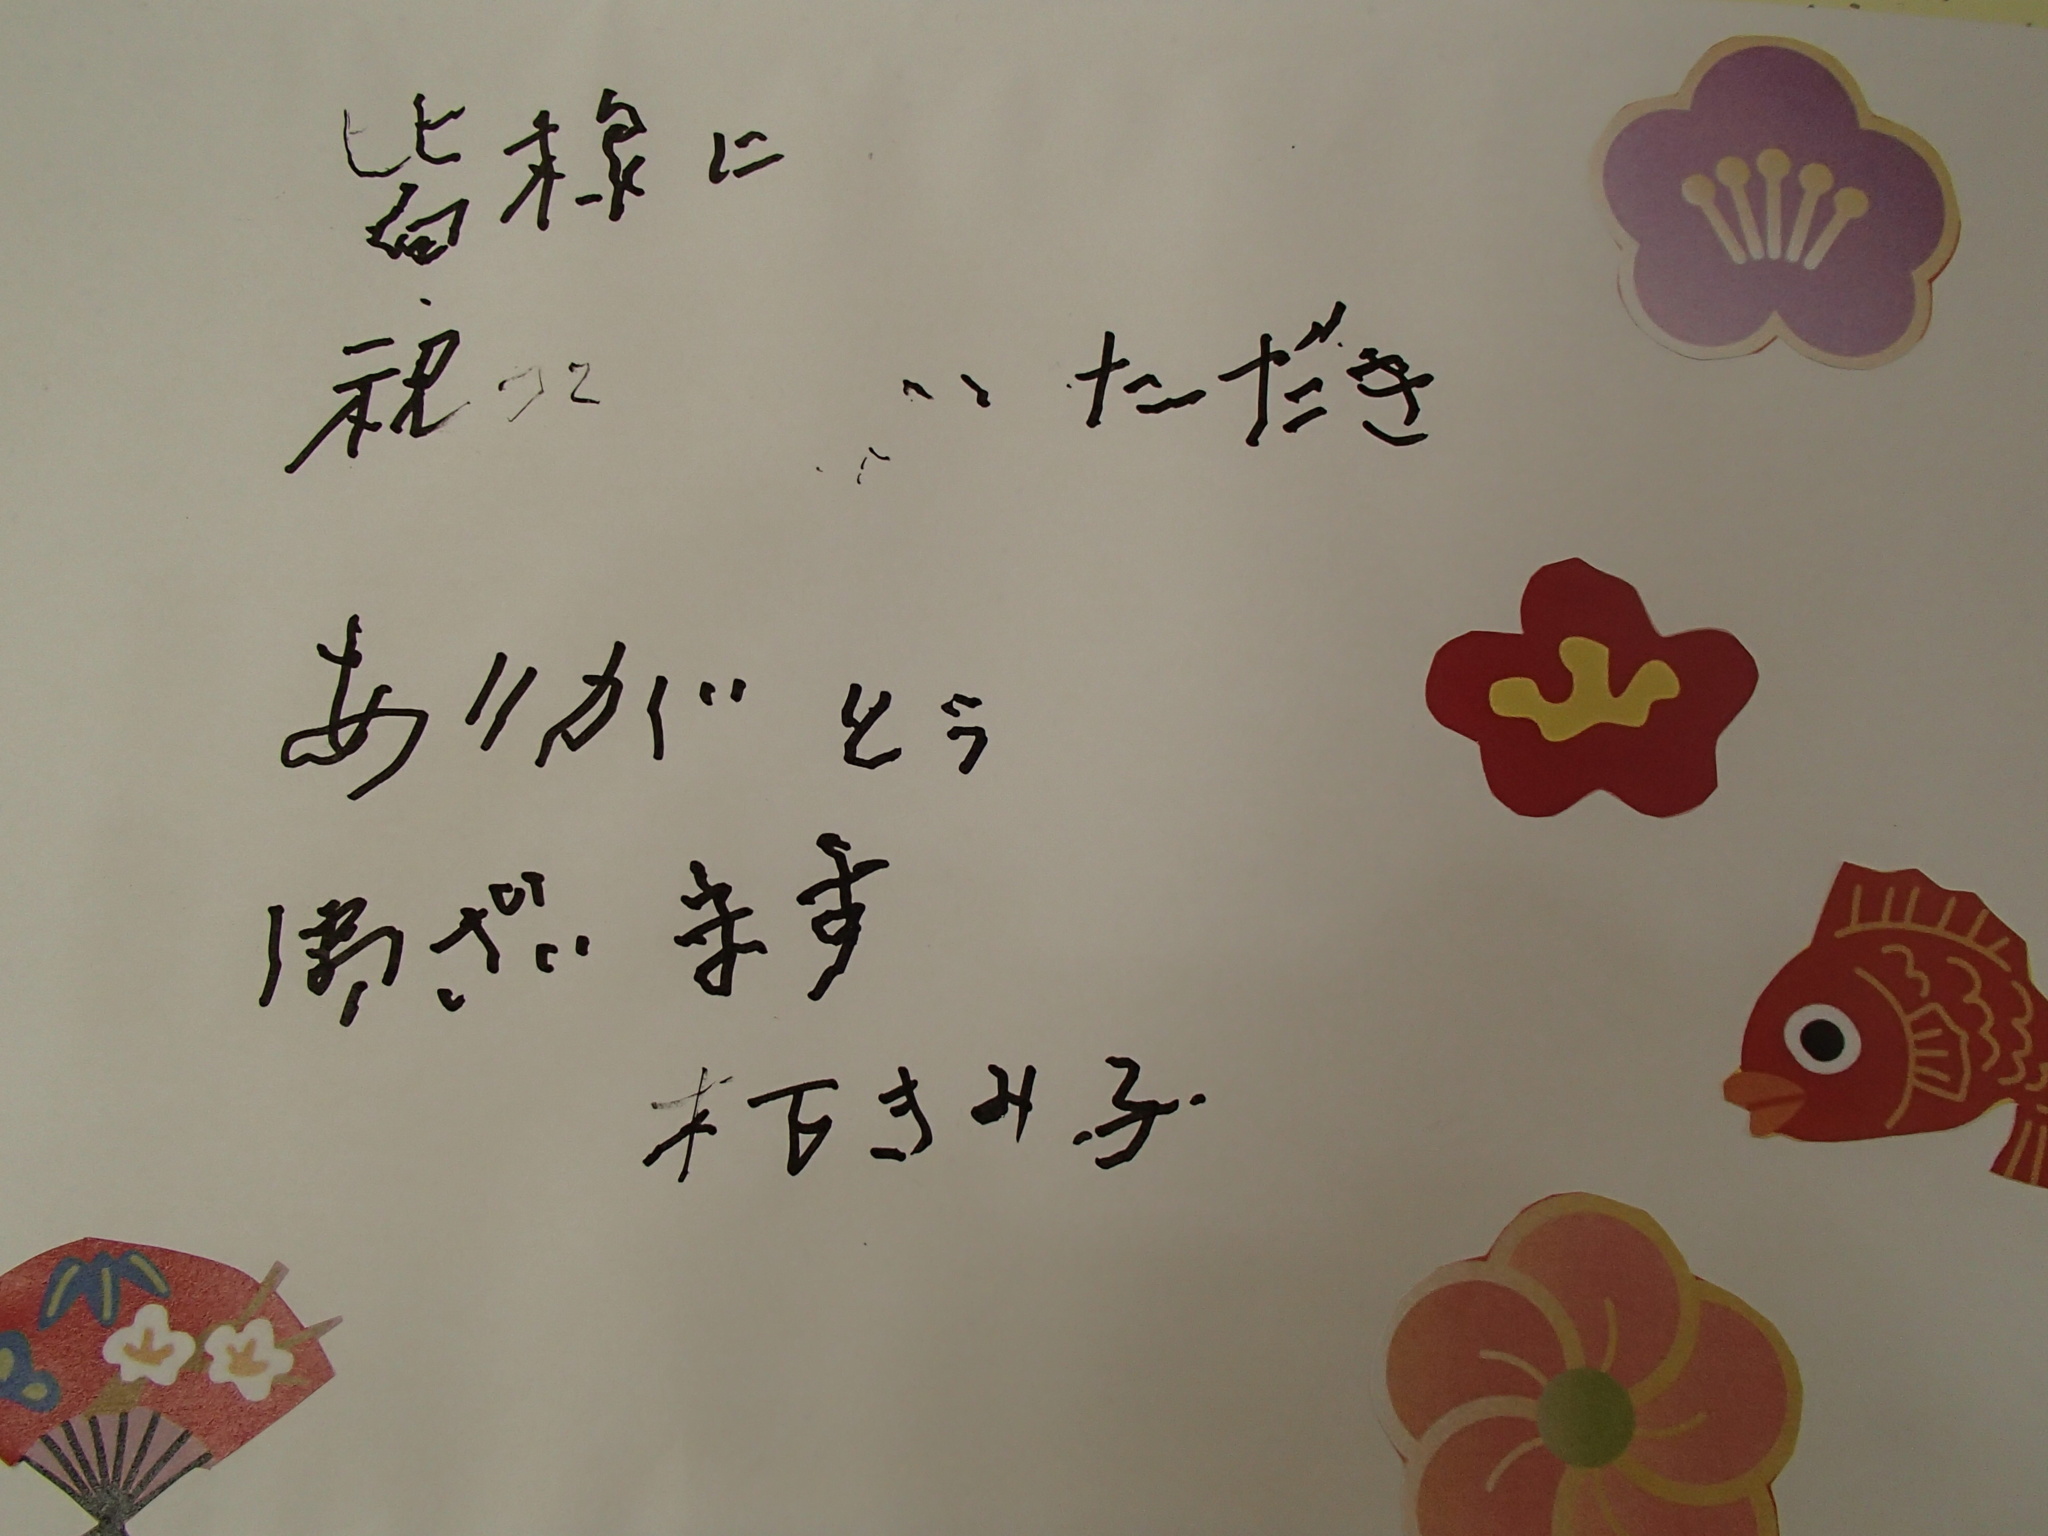 皆様に
祝って いただき
ありがとう
御ざいます
きみ子